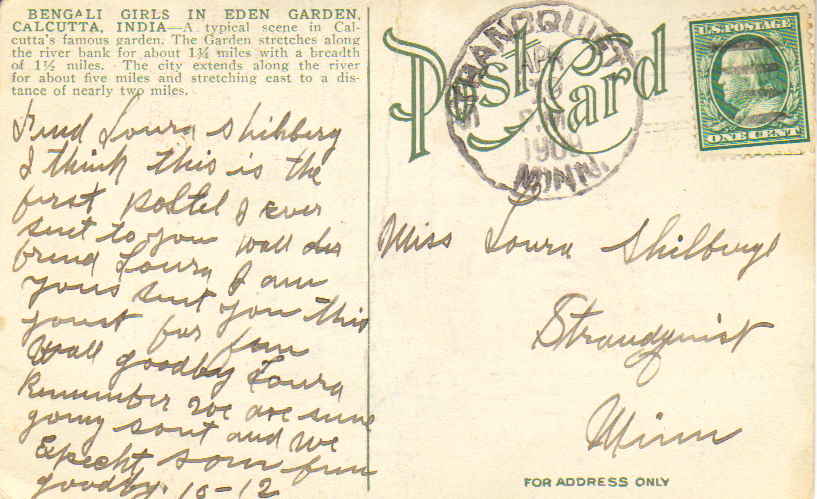 BENGALI GIRLS IN EDEN GARDEN,
CALCUTTA, INDIA—A typical scene in Cal-
cutta's famous garden. The Garden stretches along
the river bank for about 1¾ miles with a breadth
of 1½ miles. The city extends along the river
for about five miles and stretching east to a dis-
tance of nearly two miles.
Frend Loura Shilberg
I think this is the
first postel I ever
sent to you wall
frend Loura I am
yous sent you this
joust for fun
Wall goodby Loura
Remember we are sune
going sout and we
Expecht som fun
goodby. 10-12
Post Card
STRANDQUIST
APR
1909
MINN.
U.S. POSTAGE
ONE CENT
Miss Loura Shilberg
Strandquist
Minn
FOR ADDRESS ONLY